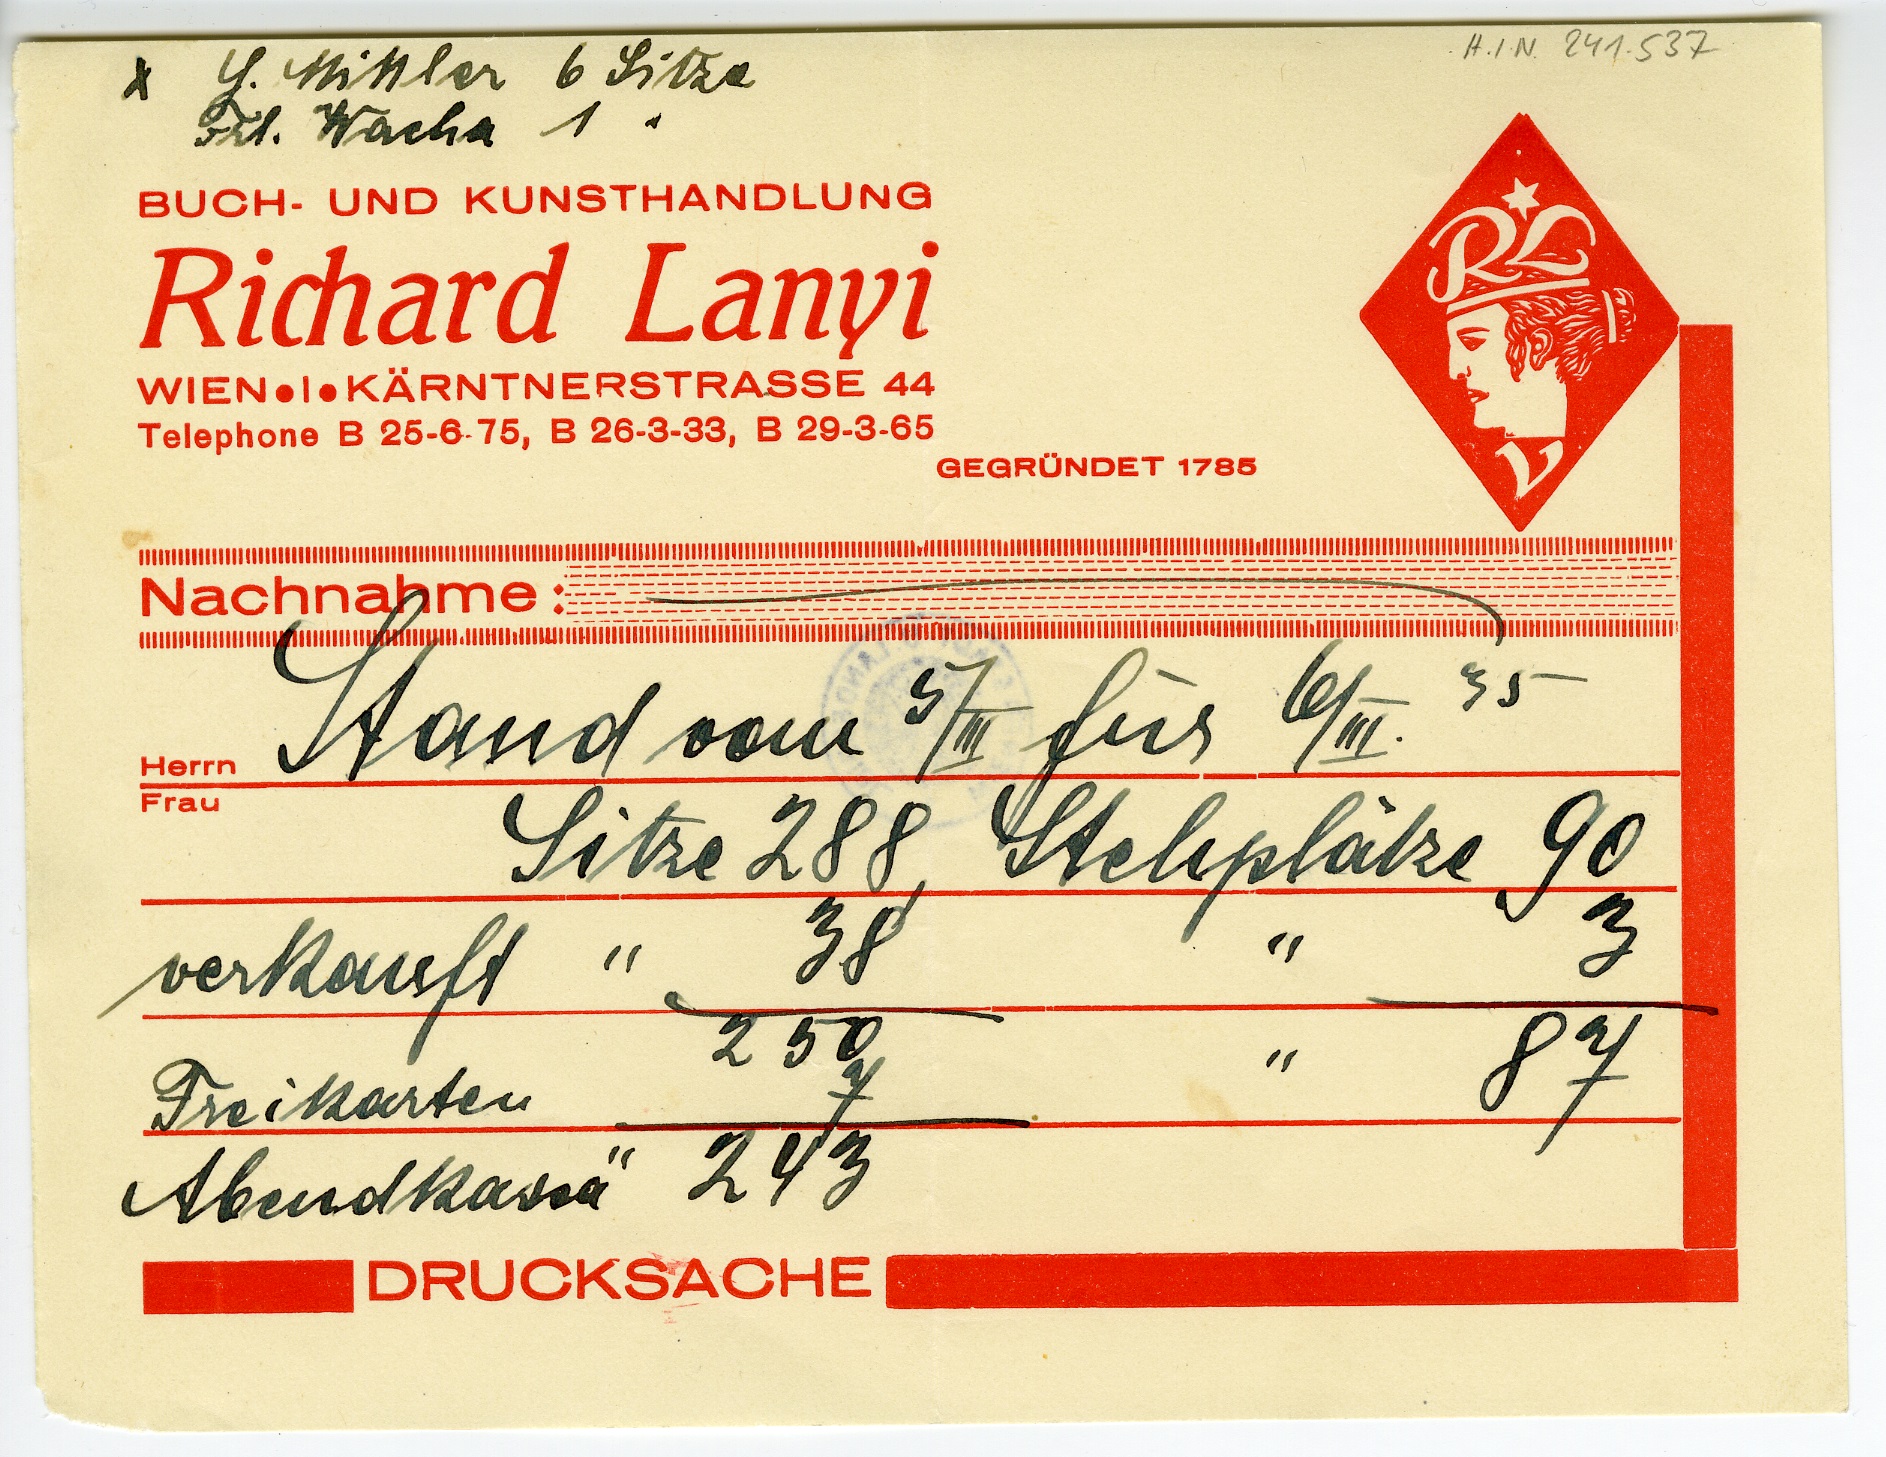 H.I.N. 241.537
x H. Mittler 6 Sitze
Frl. Wacha 1 "
BUCH- UND KUNSTHANDLUNG
Richard Lanyi
WIEN•I•KÄRNTNERSTRASSE 44
Telephone B 25-6-75, B 26-3-33, B 29-3-65
GEGRÜNDET 1785
RL
V
Nachnahme:
Stand vom 5/III für 6/III. 35
Herrn
Frau
Sitze 288 Stehplätze 90
verkauft " 38 " 3
250 " 87
Freikarten 7
Abendkassa " 243
DRUCKSACHE